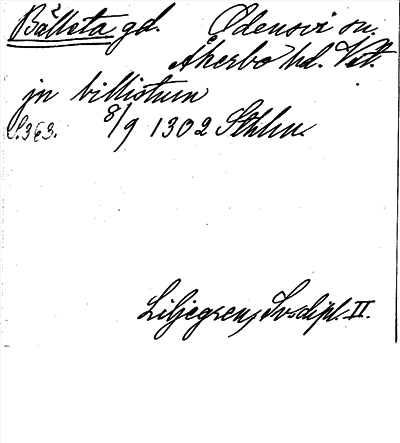 Bälleta gd. Ödensvi sn.
Åkerbo hd. Vstl.
jn billistum
S. 363. 8/9 1302 Sthlm.
Liljegren, Sv. dipl. II.